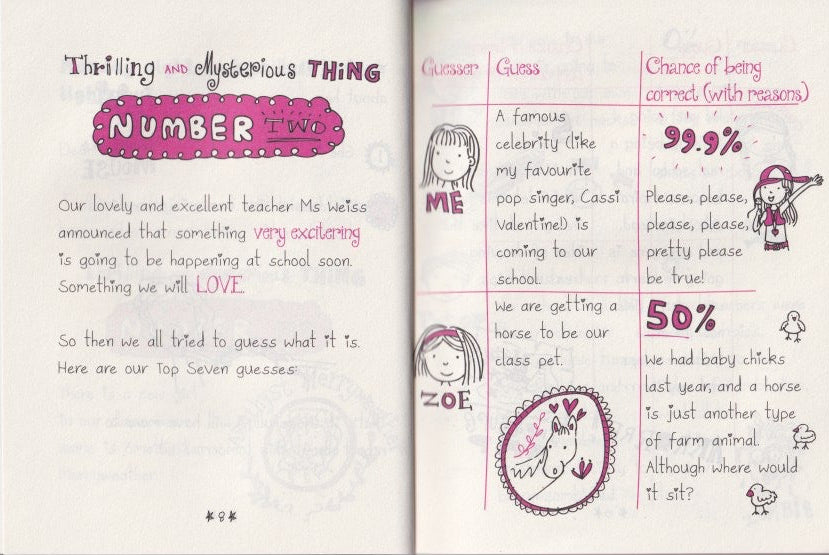 Thrilling AND Mysterious THING
NUMBER TWO
Our lovely and excellent teacher Ms Weiss
announced that something very excitering
is going to be happening at school soon.
Something we will LOVE.
So then we all tried to guess what it is.
Here are our Top Seven guesses:
*8*
Guesser
Guess
Chance of being
correct (with reasons)
ME
A famous
celebrity (like
my favourite
pop singer, Cassi
Valentine!) is
coming to our
school.
99.9%
Please, please,
please, please,
pretty please
be true!
ZOE
We are getting a
horse to be our
class pet.
50%
We had baby chicks
last year, and a horse
is just another type
of farm animal.
Although where would
it sit?